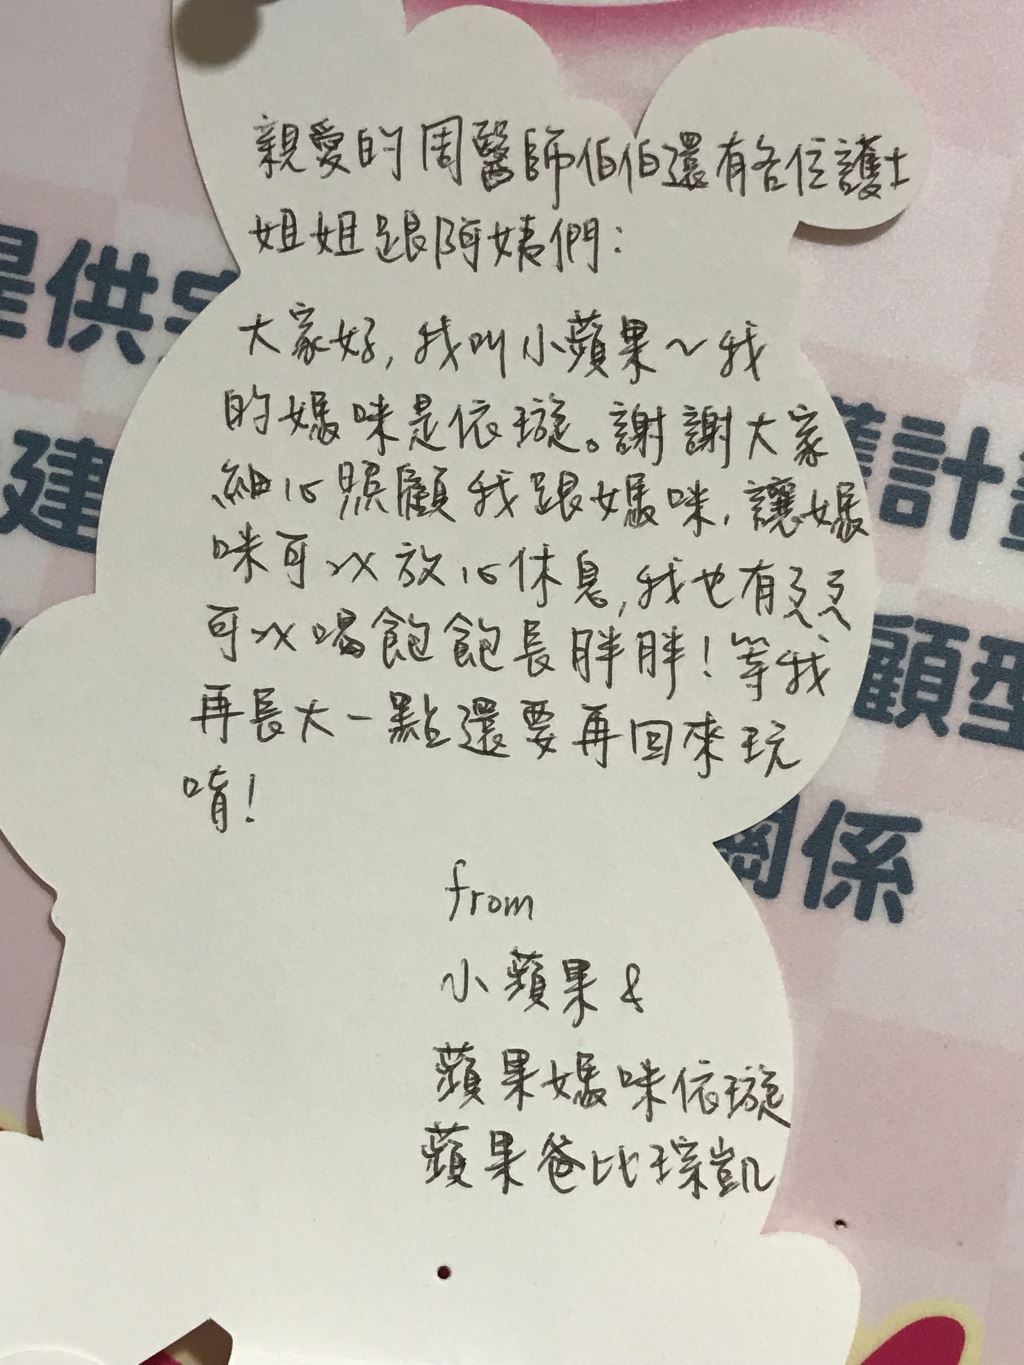 親愛的周醫師伯伯還有各位護士
姐姐跟阿姨們：
大家好，我叫小蘋果～我
的媽咪是依璇。謝謝大家
細心照顧我跟媽咪，讓媽
咪可以放心休息，我也有ㄋㄟㄋㄟ
可以喝飽飽長胖胖！等我
再長大一點還要再回來玩
唷！
from
小蘋果 &
蘋果媽咪依璇
蘋果爸比琮凱
提供
建
計
顧型
關係